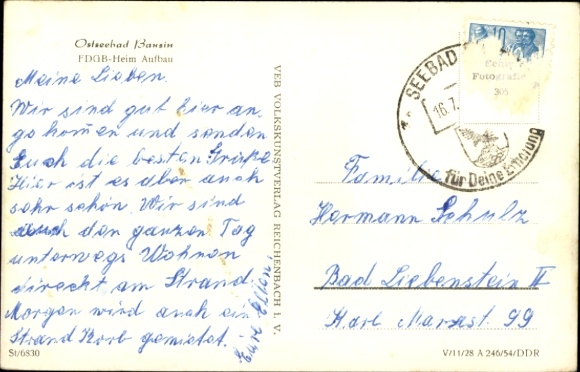 Ostseebad Bansin
FDGB-Heim Aufbau
Meine Lieben.
Wir sind gut hier an,
gekommen und senden
Euch die besten Grüße
Hier ist es aber auch
sehr schön. Wir sind
auch den ganzen Tag
unterwegs Wohnen
direckt am Strand
Morgen wird auch ein
Strand Korb gemietet.
Eure
St/6830
VEB VOLKSKUNSTVERLAG REICHENBACH I. V.
10
Echte
Fotografie
305
SEEBAD
16.7.
für Deine Erholung
Familie
Hermann Schulz
Bad Liebenstein II
Karl Marxst. 99
V/11/28 A 246/54/DDR